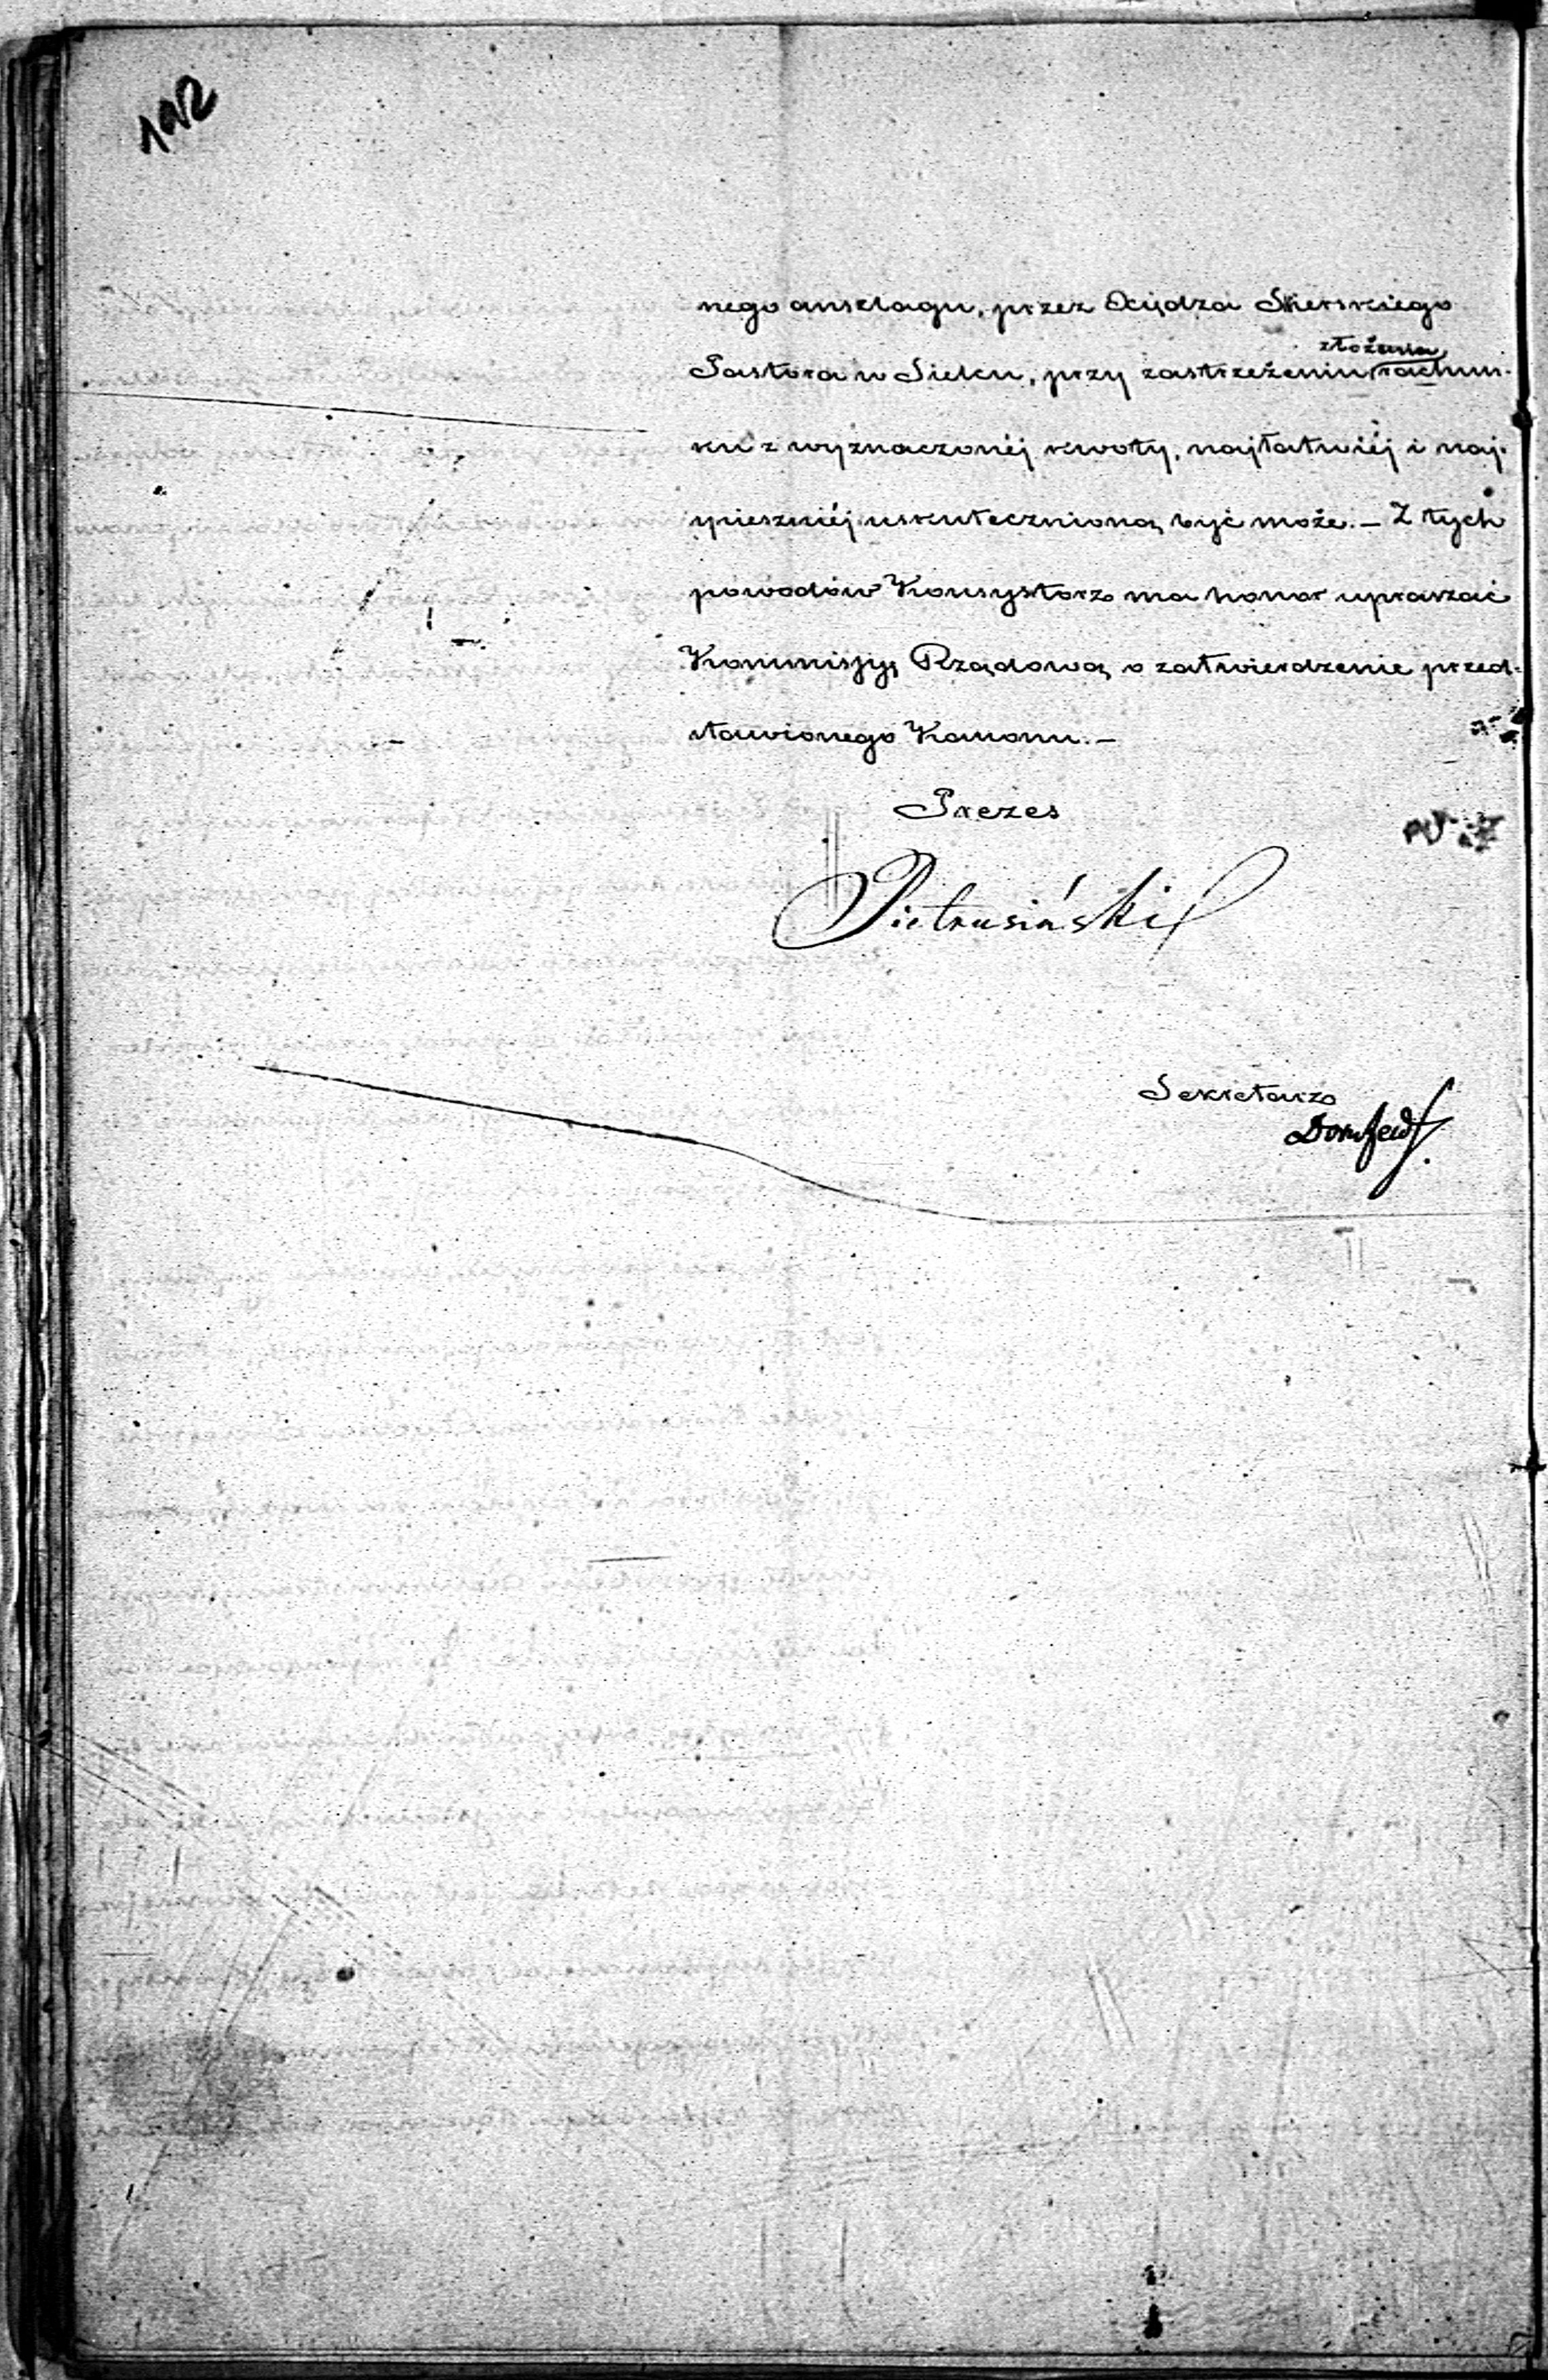 192
nego anszlagu, przez Xiędza Skierskiego
złożenia
Pastora w Sielcu, przy zastrzeżeniu rachun-
ku z wyznaczonéj kwoty, najłatwiéj i naj-
spieszniéj uskutecznioną być może. – Z tych
powodów Konsystorz ma honor upraszać
Kommissyę Rządową o zatwierdzenie przed-
stawionego Kawonu. –
Prezes
Pietrusiński
Sekretarz